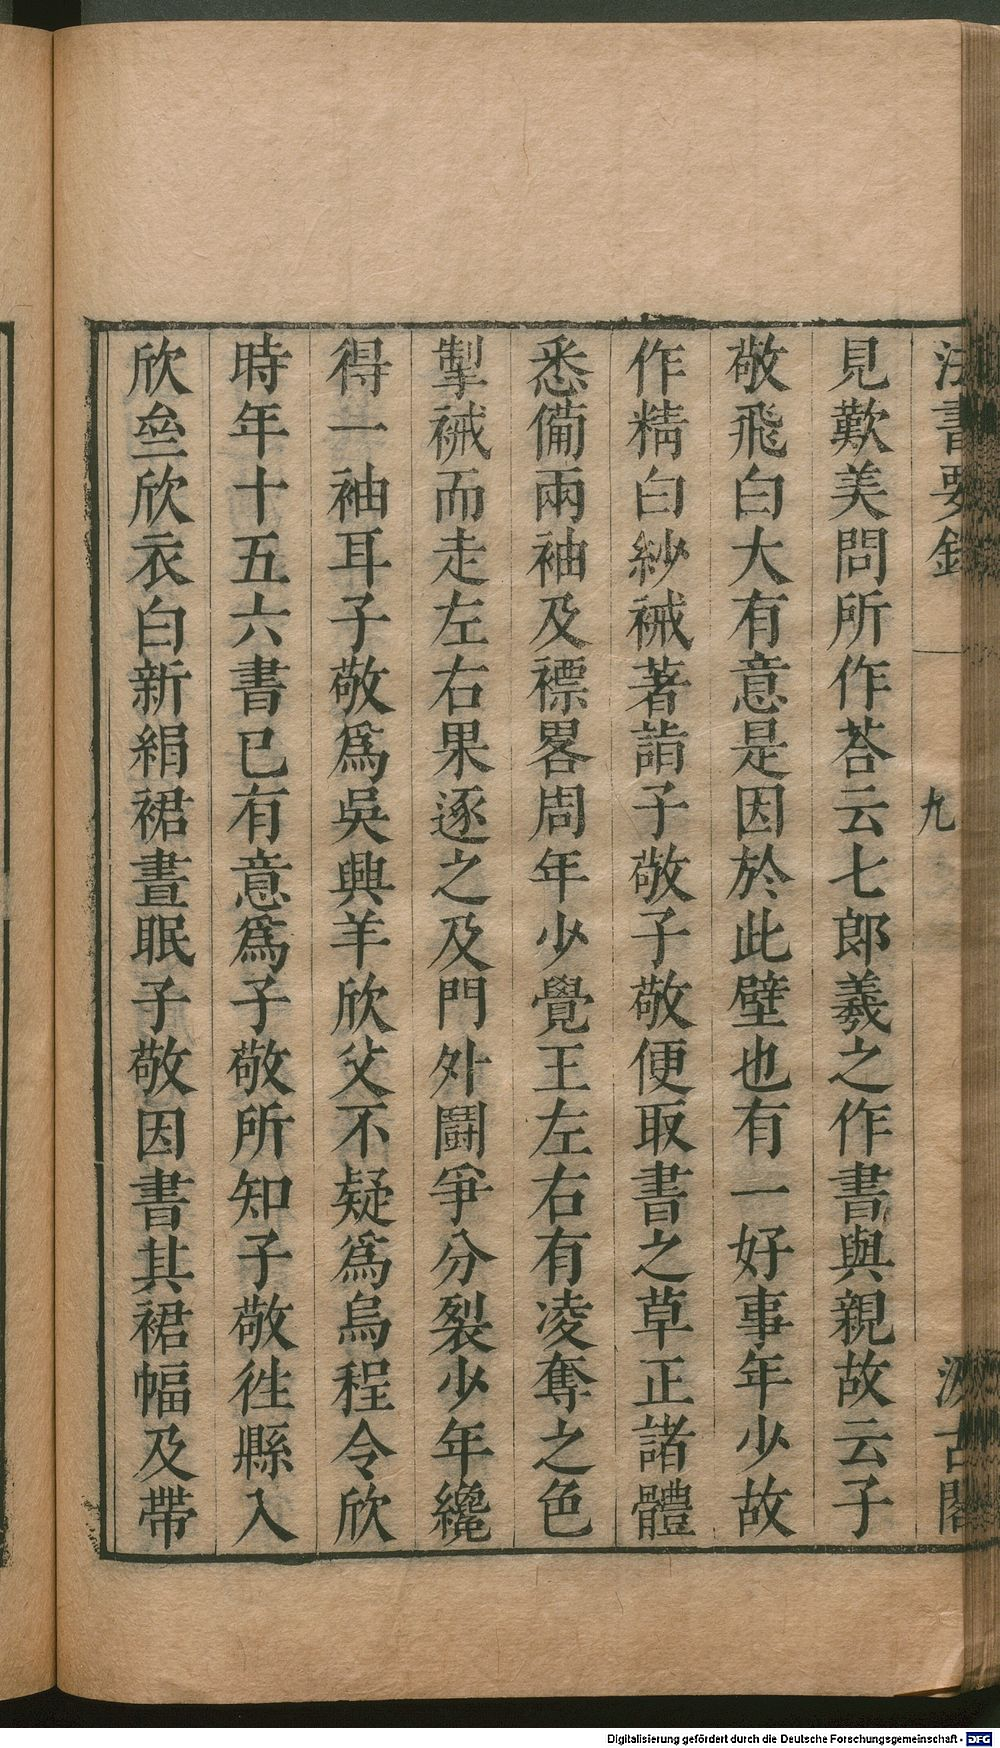 法書要錄
九
汲古閣
見歎美問所作荅云七郎羲之作書與親故云子
敬飛白大有意是因於此壁也有一好事年少故
作精白紗裓著詣子敬子敬便取書之草正諸體
悉備兩袖及褾畧周年少覺王左右有凌奪之色
掣裓而走左右果逐之及門外鬭爭分裂少年纔
得一袖耳子敬爲吳興羊欣父不疑爲烏程令欣
時年十五六書已有意爲子敬所知子敬徃縣入
欣欣衣白新絹裙晝眠子敬因書其裙幅及帶
Digitalisierung gefördert durch die Deutsche Forschungsgemeinschaft - DFG